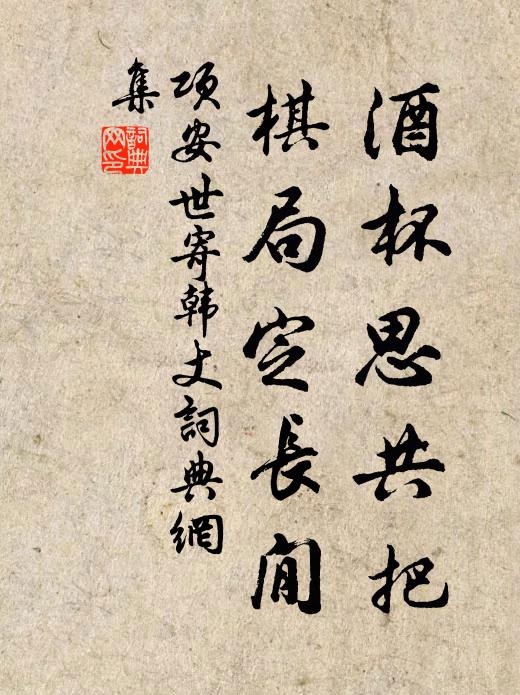 酒杯思共把
棋局定長閒
項安世寄韓丈詞典網
集
詞典
网印